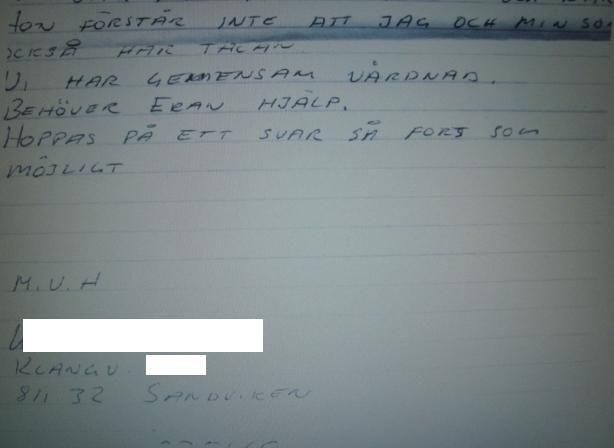 HON FÖRSTÅR INTE ATT JAG OCH MIN SO
OCKSÅ HAR TALAN
VI HAR GEMENSAM VÅRDNAD.
BEHÖVER ERAN HJÄLP.
HOPPAS PÅ ETT SVAR SÅ FORT SOM
MÖJLIGT
M.V.H
KLANGV.
811 32 SANDVIKEN